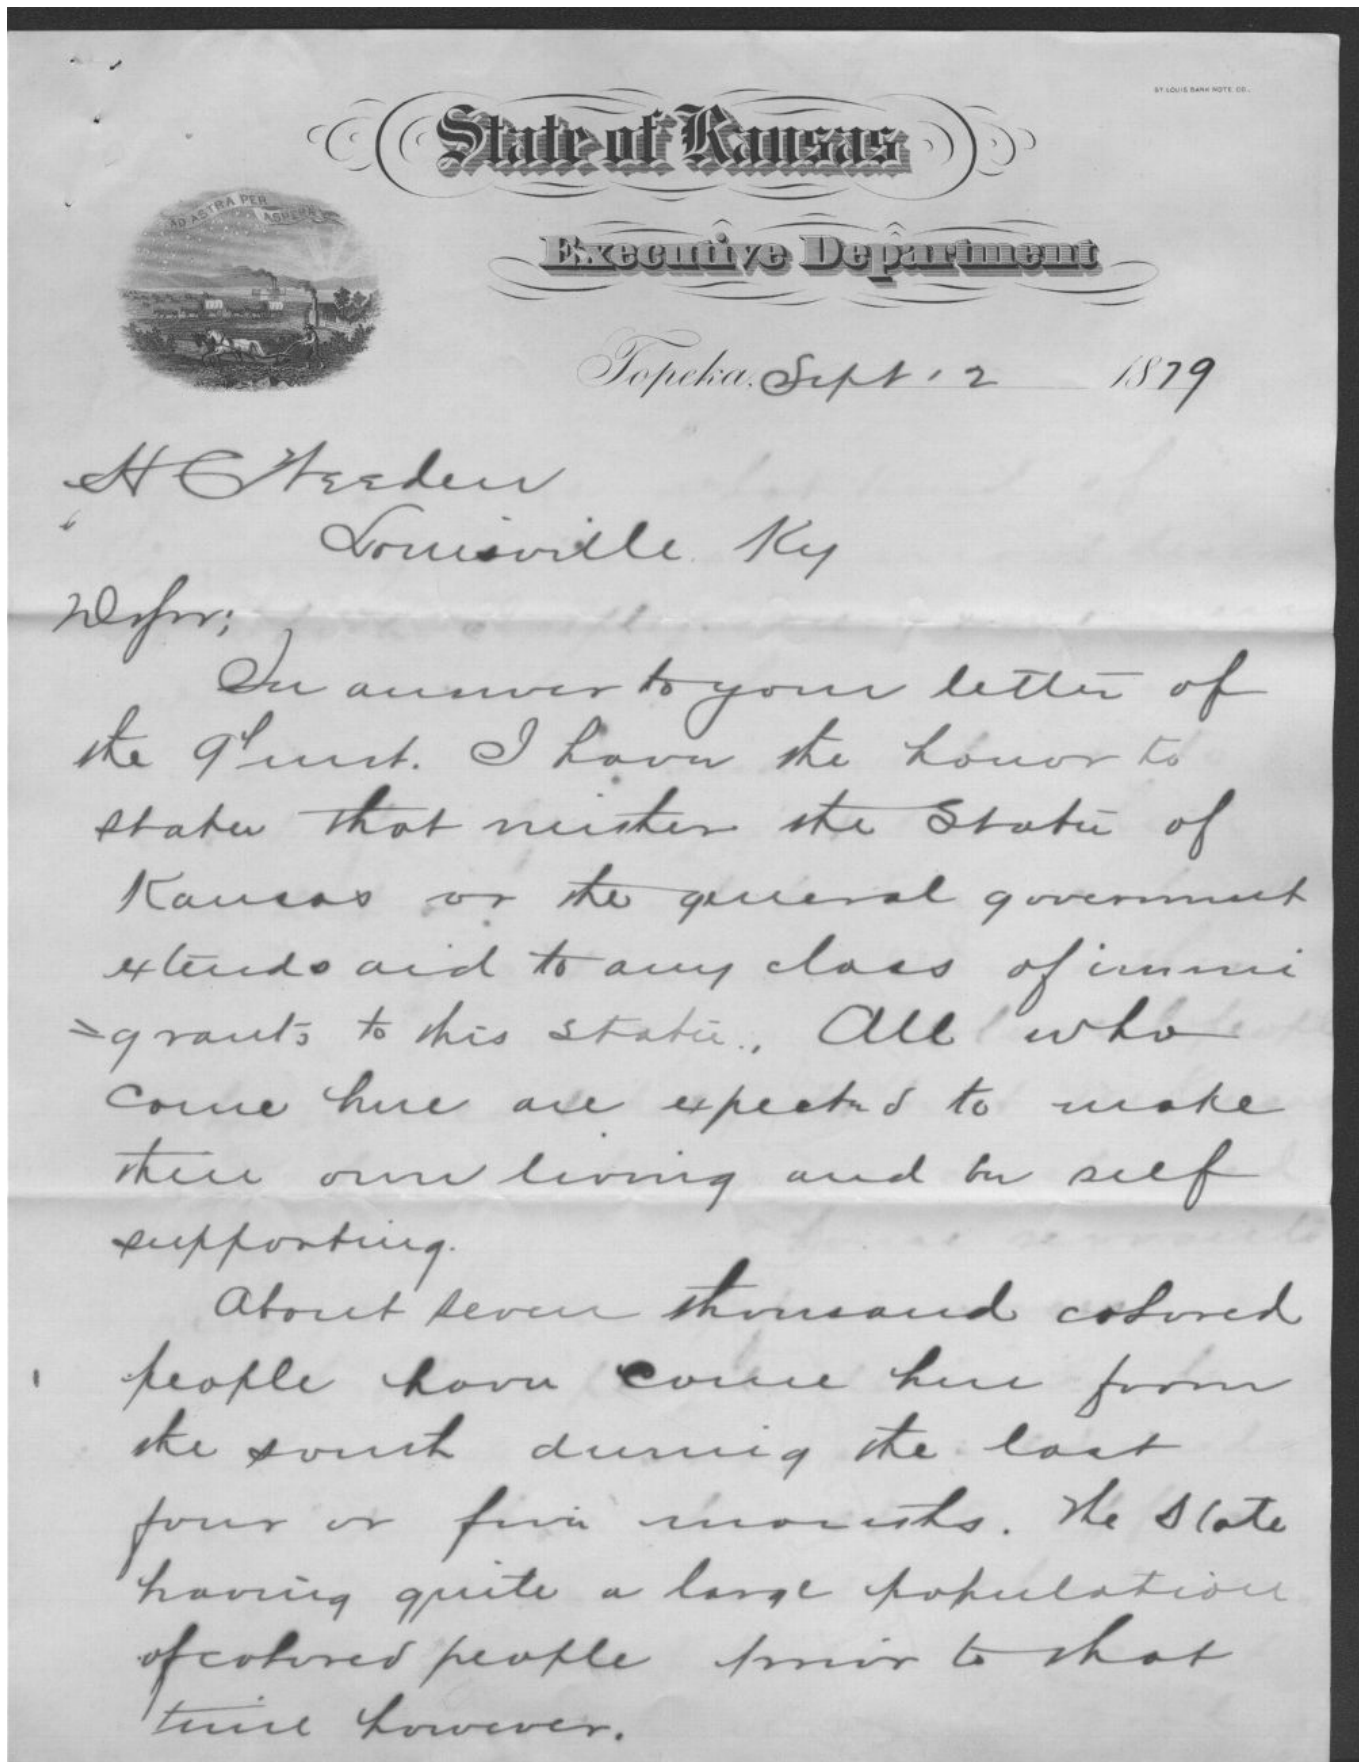 ST. LOUIS BANK NOTE CO.
State of Kansas
AD ASTRA PER
ASPERA
Executive Department
Topeka, Sept. 12 1879
H C Weeden
Louisville Ky
D Sir;
In answer to your letter of
the 9th inst. I have the honor to
state that neither the State of
Kansas or the general government
extends aid to any class of immi
=grants to this State. All who
come here are expected to make
their own living and be self
supporting.
About seven thousand colored
people have come here from
the south during the last
four or five months. The State
having quite a large population
of colored people prior to that
time however.